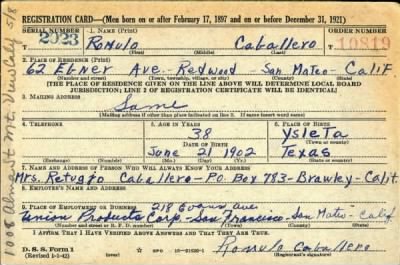 REGISTRATION CARD—(Men born on or after February 17, 1897 and on or before December 31, 1921)
SERIAL NUMBER 1. NAME (Print) ORDER NUMBER
2023 Romulo Caballero 10819
(First) (Middle) (Last)
2. PLACE OF RESIDENCE (Print)
62 Ave - Redwood - San Mateo - Calif
(Number and street) (Town, township, village, or city) (County) (State)
[THE PLACE OF RESIDENCE GIVEN ON THE LINE ABOVE WILL DETERMINE LOCAL BOARD
JURISDICTION; LINE 2 OF REGISTRATION CERTIFICATE WILL BE IDENTICAL]
3. MAILING ADDRESS
Same
[Mailing address if other than place indicated on line 2. If same insert word same]
4. TELEPHONE 5. AGE IN YEARS 6. PLACE OF BIRTH
38 Ysleta
DATE OF BIRTH (Town or county)
June 21 1902 Texas
(Exchange) (Number) (Mo.) (Day) (Yr.) (State or country)
7. NAME AND ADDRESS OF PERSON WHO WILL ALWAYS KNOW YOUR ADDRESS
Mrs. Refugio Caballero - P.O. Box 783 - Brawley - Calif.
8. EMPLOYER'S NAME AND ADDRESS
218 Evans Ave
9. PLACE OF EMPLOYMENT OR BUSINESS
Union Products Corp. - San Francisco - San Mateo - Calif
(Number and street or R. F. D. number) (Town) (County) (State)
I AFFIRM THAT I HAVE VERIFIED ABOVE ANSWERS AND THAT THEY ARE TRUE.
D. S. S. Form 1
(Revised 1-1-42) Romulo Caballero
(Registrant's signature)